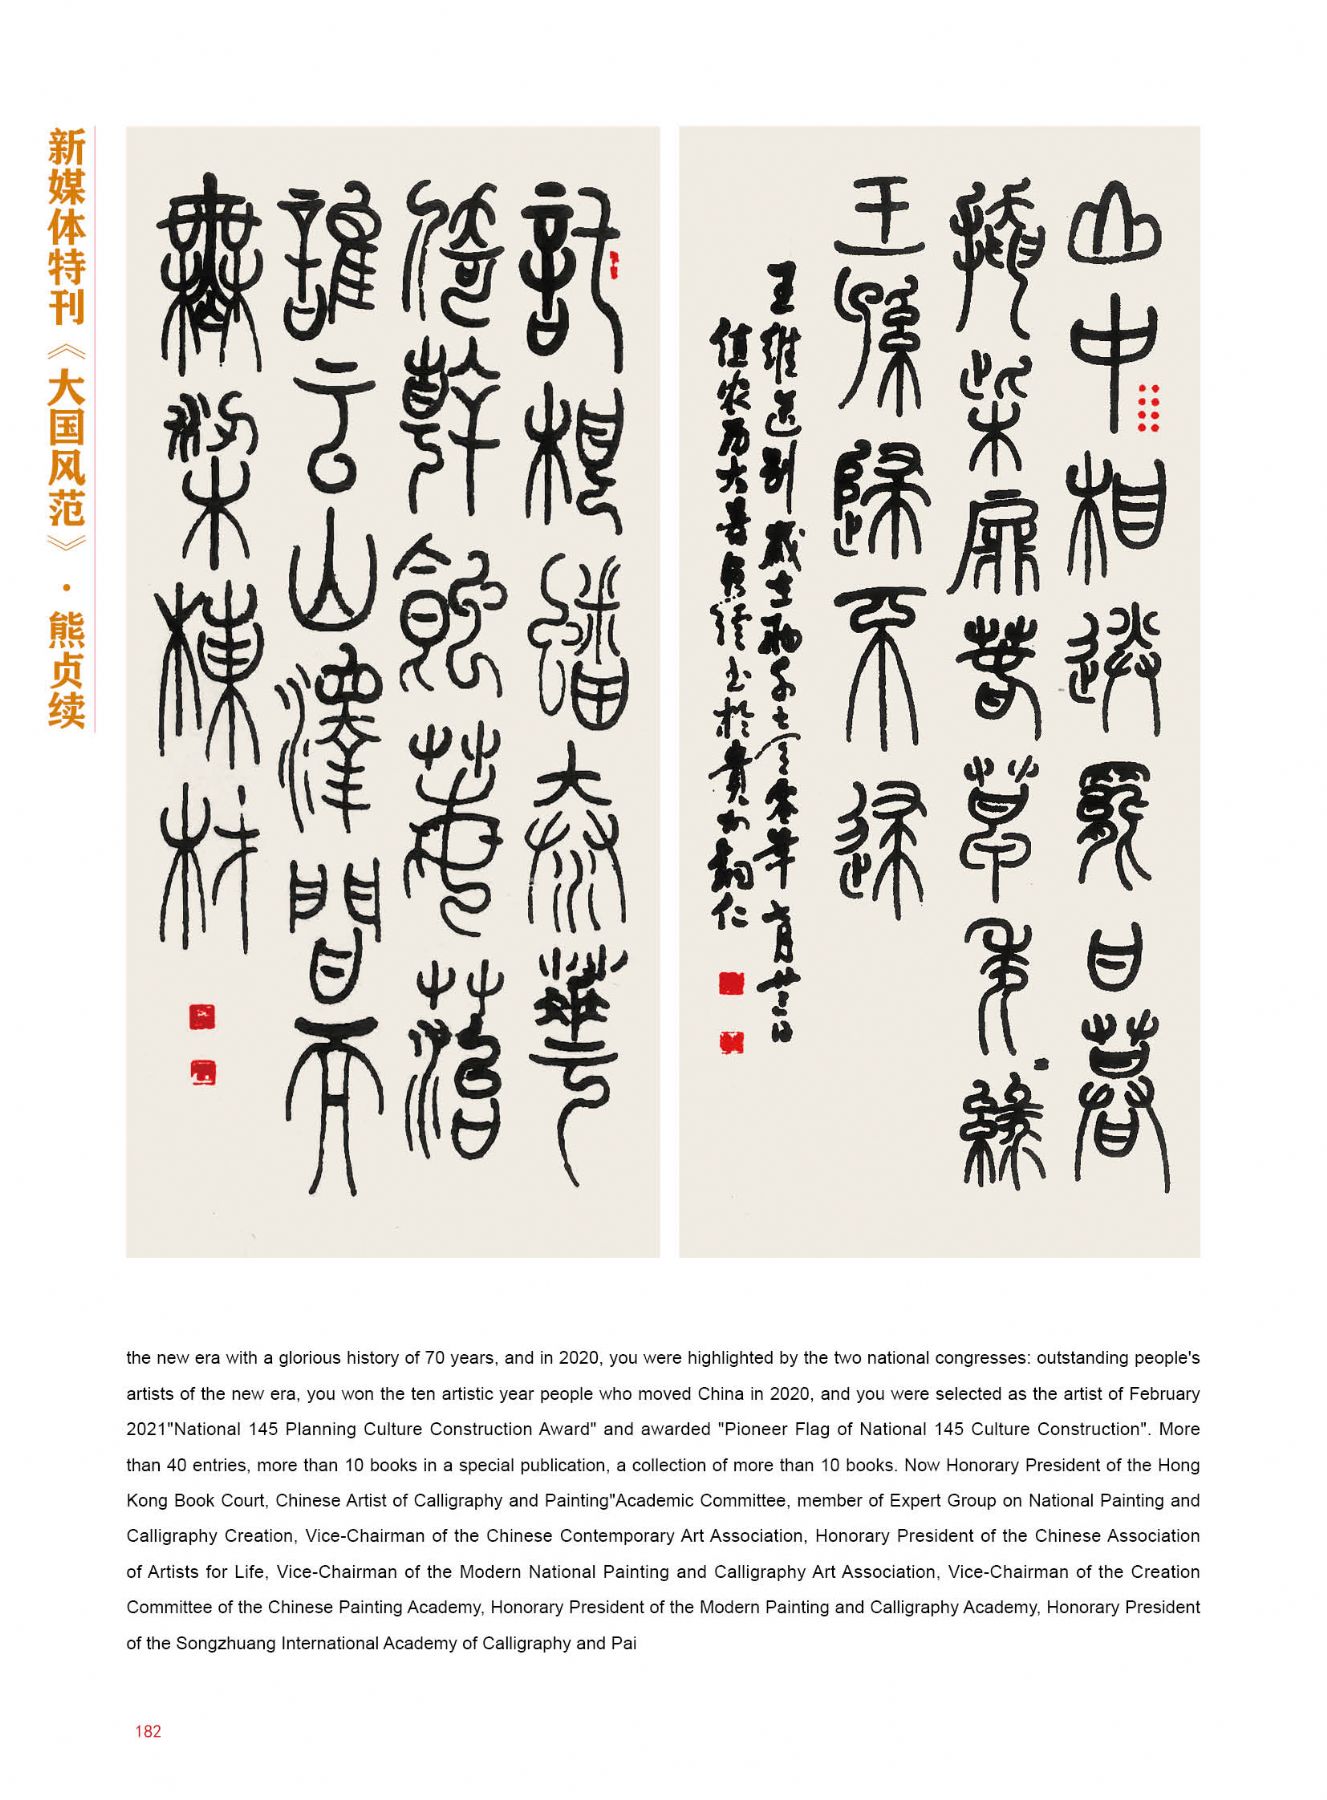 新媒体特刊《大国风范》·熊贞续
山中相送罷日暮
掩柴扉春草年々綠
王孫歸不歸
王維送别
值农历大暑贞续书於貴州铜仁
託根蟠泰華
倚幹蝕莓菭
誰云山澤間而
無梁棟材
the new era with a glorious history of 70 years, and in 2020, you were highlighted by the two national congresses: outstanding people's
artists of the new era, you won the ten artistic year people who moved China in 2020, and you were selected as the artist of February
2021"National 145 Planning Culture Construction Award" and awarded "Pioneer Flag of National 145 Culture Construction". More
than 40 entries, more than 10 books in a special publication, a collection of more than 10 books. Now Honorary President of the Hong
Kong Book Court, Chinese Artist of Calligraphy and Painting"Academic Committee, member of Expert Group on National Painting and
Calligraphy Creation, Vice-Chairman of the Chinese Contemporary Art Association, Honorary President of the Chinese Association
of Artists for Life, Vice-Chairman of the Modern National Painting and Calligraphy Art Association, Vice-Chairman of the Creation
Committee of the Chinese Painting Academy, Honorary President of the Modern Painting and Calligraphy Academy, Honorary President
of the Songzhuang International Academy of Calligraphy and Pai
182